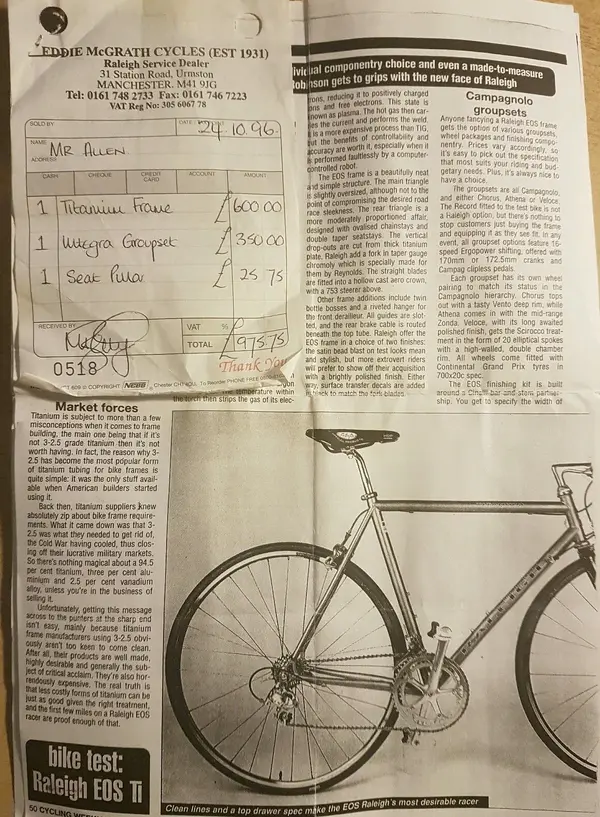 EDDIE McGRATH CYCLES (EST 1931)
Raleigh Service Dealer
31 Station Road, Urmston
MANCHESTER. M41 9JG
Tel: 0161 748 2733 Fax: 0161 746 7223
VAT Reg No: 305 6067 78
SOLD BY
DATE
24.10.96.
NAME
MR ALLEN
ADDRESS
CASH CHEQUE CREDIT CARD ACCOUNT AMOUNT
1 Titanium Frame £600 00
1 Integra Groupset £350.00
1 Seat Pillar £ 25 75
RECEIVED BY
VAT %
TOTAL £975.75
0518
Thank You
COPYRIGHT
vidual componentry choice and even a made-to-measure
obinson gets to grips with the new face of Raleigh
trons, reducing it to positively charged
ions and free electrons. This state is
known as plasma. The hot gas then car-
ries the current and performs the weld.
is a more expensive process than TIG,
but the benefits of controllability and
accuracy are worth it, especially when it
is performed faultlessly by a computer-
controlled robot.
The EOS frame is a beautifully neat
and simple structure. The main triangle
is slightly oversized, although not to the
point of compromising the desired road
race sleekness. The rear triangle is a
more moderately proportioned affair,
designed with ovalised chainstays and
double taper seatstays. The vertical
drop-outs are cut from thick titanium
plate. Raleigh add a fork in taper gauge
chromoly which is specially made for
them by Reynolds. The straight blades
are fitted into a hollow cast aero crown,
with a 753 steerer above.
Other frame additions include twin
bottle bosses and a riveted hanger for
the front derailleur. All guides are slot-
ted, and the rear brake cable is routed
beneath the top tube. Raleigh offer the
EOS frame in a choice of two finishes:
the satin bead blast on test looks mean
and stylish, but more extrovert riders
will prefer to show off their acquisition
with a brightly polished finish. Either
way, surface transfer decals are added
in black to match the fork blades.
Campagnolo
groupsets
Anyone fancying a Raleigh EOS frame
gets the option of various groupsets,
wheel packages and finishing compo-
nentry. Prices vary accordingly, so
it's easy to pick out the specification
that most suits your riding and bud-
getary needs. Plus, it's always nice to
have a choice.
The groupsets are all Campagnolo,
and either Chorus, Athena or Veloce.
The Record fitted to the test bike is not
a Raleigh option, but there's nothing to
stop customers just buying the frame
and equipping it as they see fit. In any
event, all groupset options feature 16-
speed Ergopower shifting, offered with
170mm or 172.5mm cranks and
Campag clipless pedals.
Each groupset has its own wheel
pairing to match its status in the
Campagnolo hierarchy. Chorus tops
out with a tasty Vento deep rim, while
Athena comes in with the mid-range
Zonda. Veloce, with its long awaited
polished finish, gets the Scirocco treat-
ment in the form of 20 elliptical spokes
with a high-walled, double chamber
rim. All wheels come fitted with
Continental Grand Prix tyres in
700x20c spec.
The EOS finishing kit is built
around a Cinelli bar and stem partner-
ship. You get to specify the width of
the torch then strips the gas of its elec-
Market forces
Titanium is subject to more than a few
misconceptions when it comes to frame
building, the main one being that if it's
not 3-2.5 grade titanium then it's not
worth having. In fact, the reason why 3-
2.5 has become the most popular form
of titanium tubing for bike frames is
quite simple: it was the only stuff avail-
able when American builders started
using it.
Back then, titanium suppliers knew
absolutely zip about bike frame require-
ments. What it came down was that 3-
2.5 was what they needed to get rid of,
the Cold War having cooled, thus clos-
ing off their lucrative military markets.
So there's nothing magical about a 94.5
per cent titanium, three per cent alu-
minium and 2.5 per cent vanadium
alloy, unless you're in the business of
selling it.
Unfortunately, getting this message
across to the punters at the sharp end
isn't easy, mainly because titanium
frame manufacturers using 3-2.5 obvi-
ously aren't too keen to come clean.
After all, their products are well made,
highly desirable and generally the sub-
ject of critical acclaim. They're also hor-
rendously expensive. The real truth is
that less costly forms of titanium can be
just as good given the right treatment,
and the first few miles on a Raleigh EOS
racer are proof enough of that.
RALEIGH
bike test:
Raleigh EOS Ti
50 CYCLING WEEKLY
Clean lines and a top drawer spec make the EOS Raleigh's most desirable racer